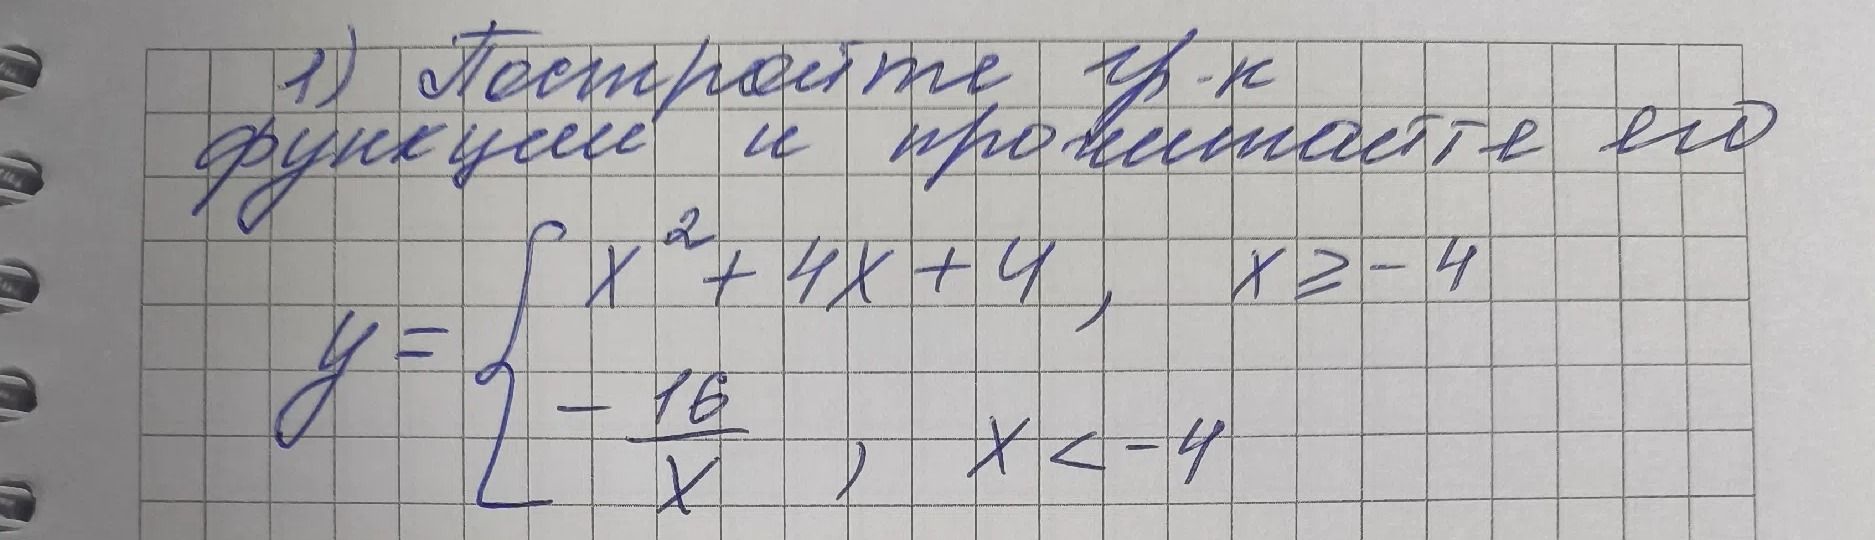 1) Постройте гр-к
функции и прочитайте его
y = { x² + 4x + 4, x ≥ -4
- 16/x, x < -4